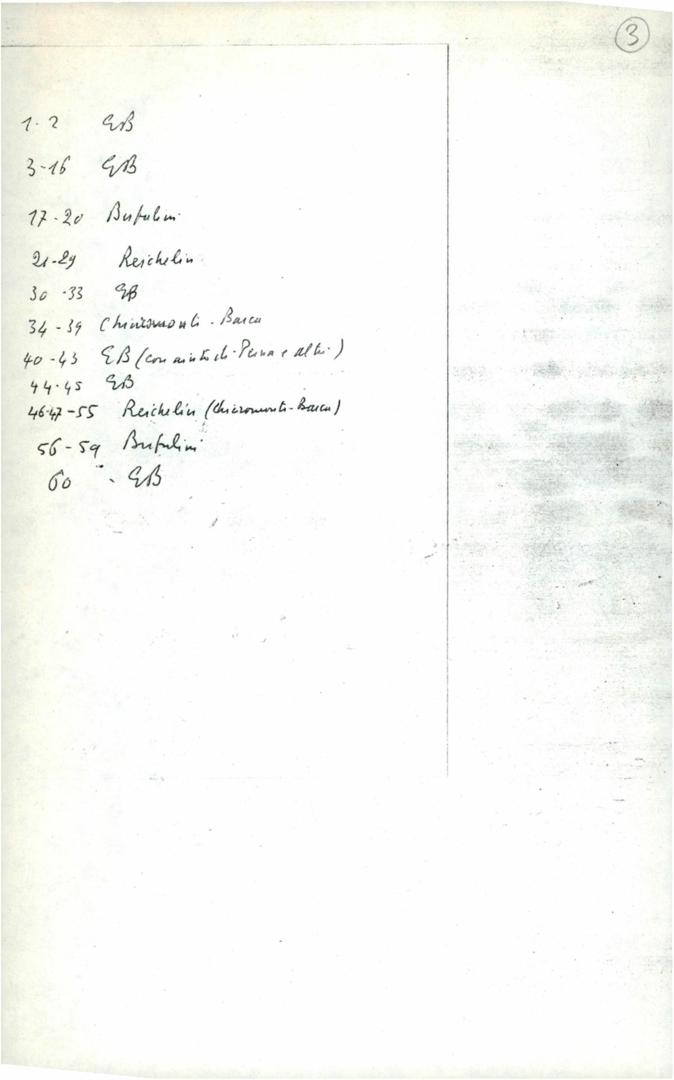 3
1-2 EB
3-16 EB
17-20 Bufalini
21-29 Reichelin
30-33 EB
34-39 Chiaromonti - Barca
40-43 EB (con aiuto di Penna e altri)
44-45 EB
46-47-55 Reichelin (Chiaromonti-Barca)
56-59 Bufalini
60 - EB